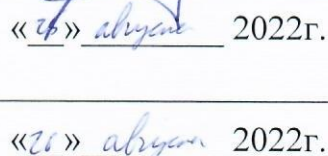 «26» августа 2022г.
«26» августа 2022г.